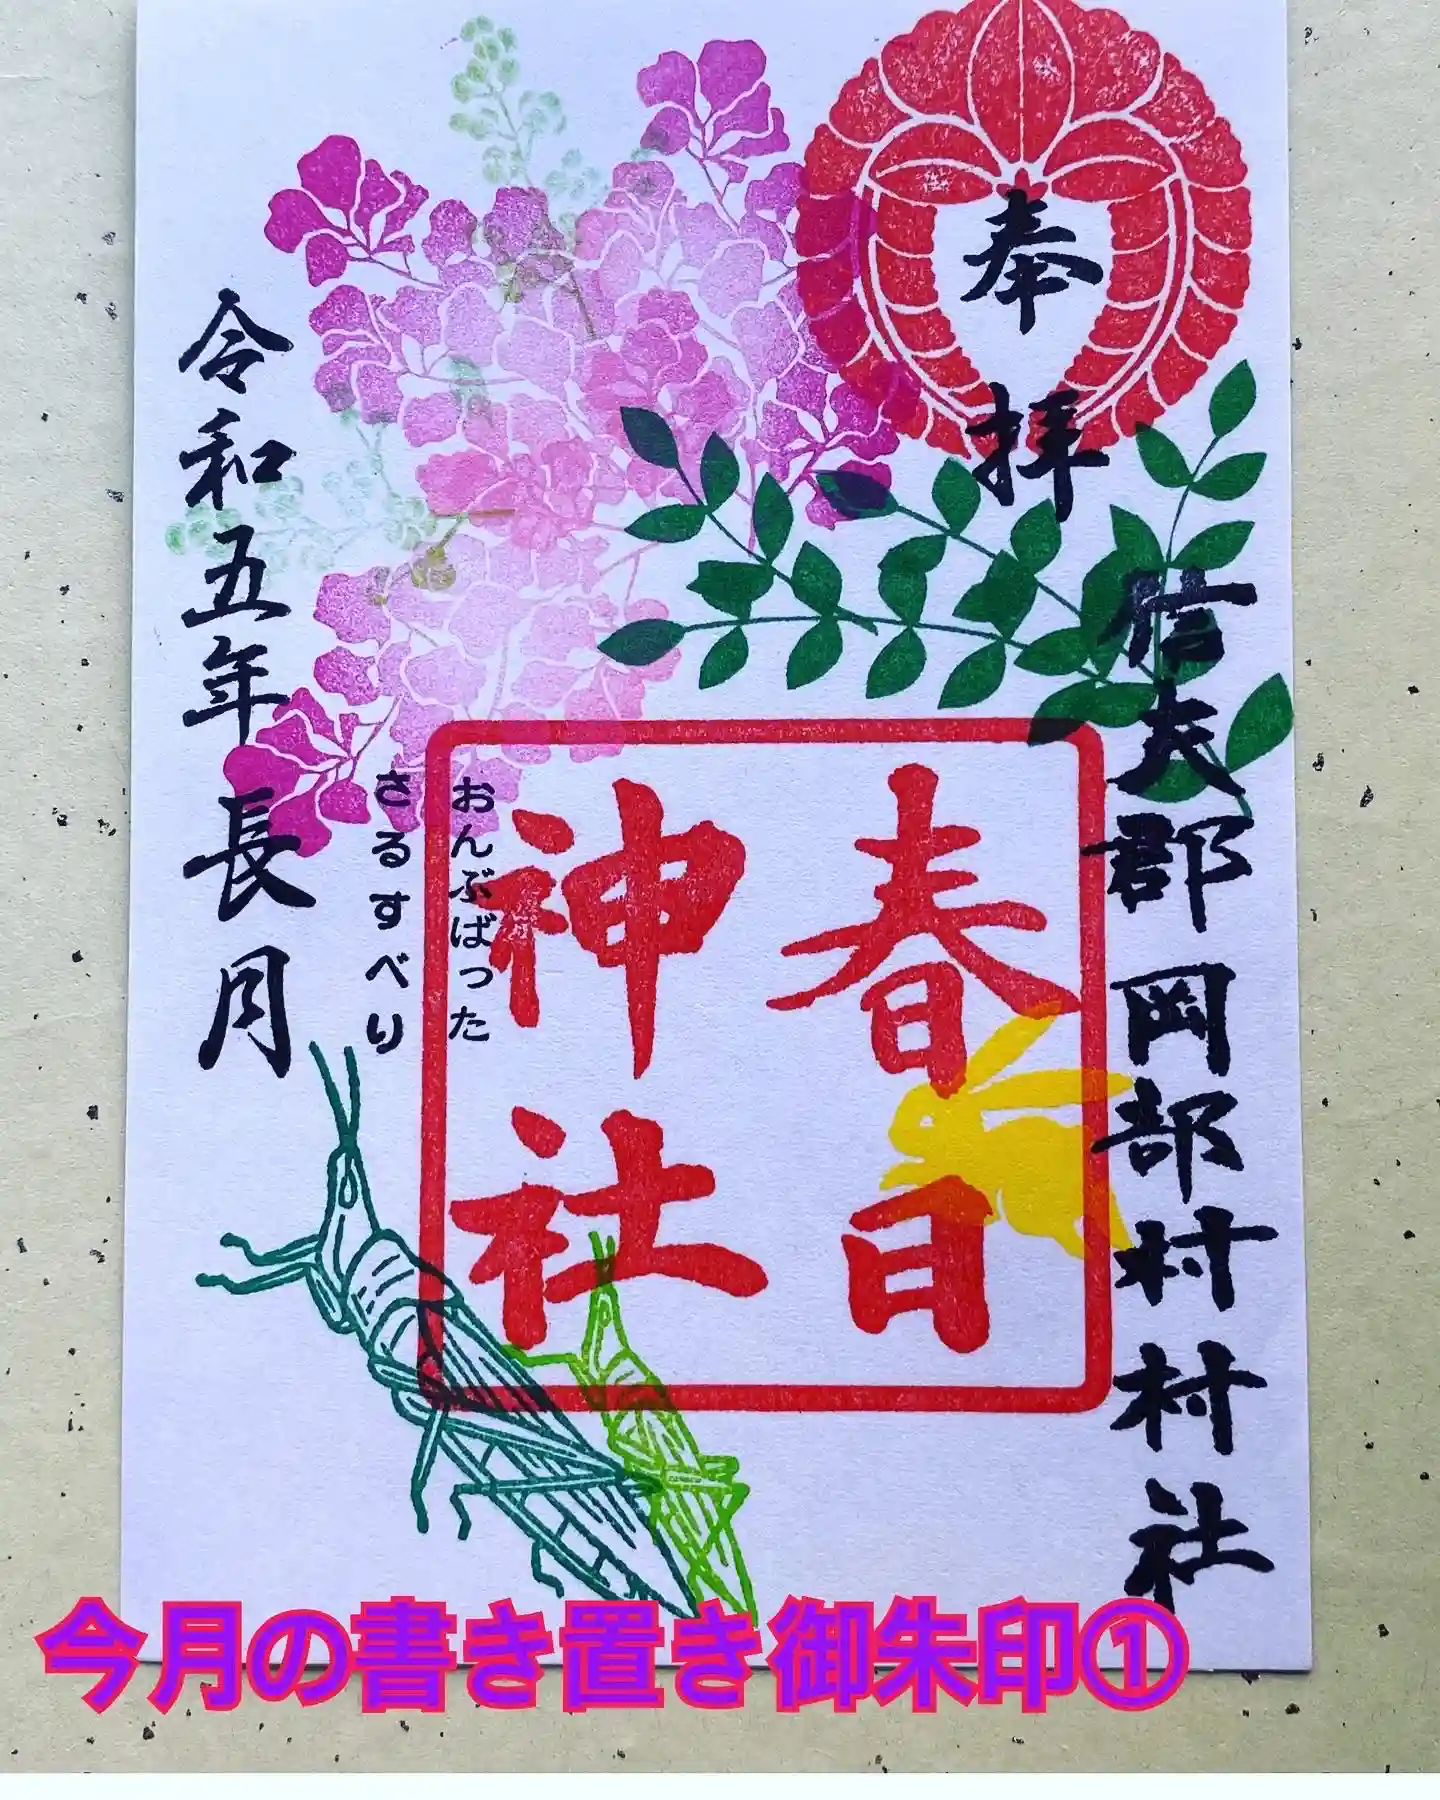 奉拝
信夫郡岡部村村社
春日
神社
おんぶばった
さるすべり
令和五年長月
今月の書き置き御朱印①